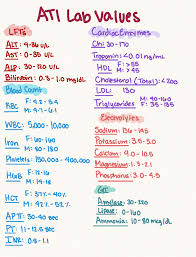 ATI Lab Values
LFTs
ALT: 4-36 u/L
AST: 0-35 u/L
ALP: 30-120 u/L
Bilirubin: 0.3-1.0 mg/dL
Blood Count
RBC: F: 4.2-5.4
M:
WBC: 5,000-10,000
Iron: F: 60-160
M: 80-180
Platelets: 150,000-400,000
HGB: F: 12-16
M: 14-18
HCT: F: 37%-47%
M: 42%-52%
APTT: 30-40 sec
PT: 11-12.5 sec
INR: 0.8-1.1
Cardiac Enzymes
Troponin: <0.01 ng/mL
HDL: F: >55
M: >45
Cholesterol (Total): <200
LDL: 130
Triglycerides: M: 40-160
F: 35-135
Electrolytes
Sodium: 136-145
Potassium: 3.5-5.0
Calcium: 9.0-10.5
Magnesium: 1.3-2.1
Phosphorus: 3.0-4.5
GI
Amylase: 30-220
Lipase: 0-160
Ammonia: 10-80 mcg/dL